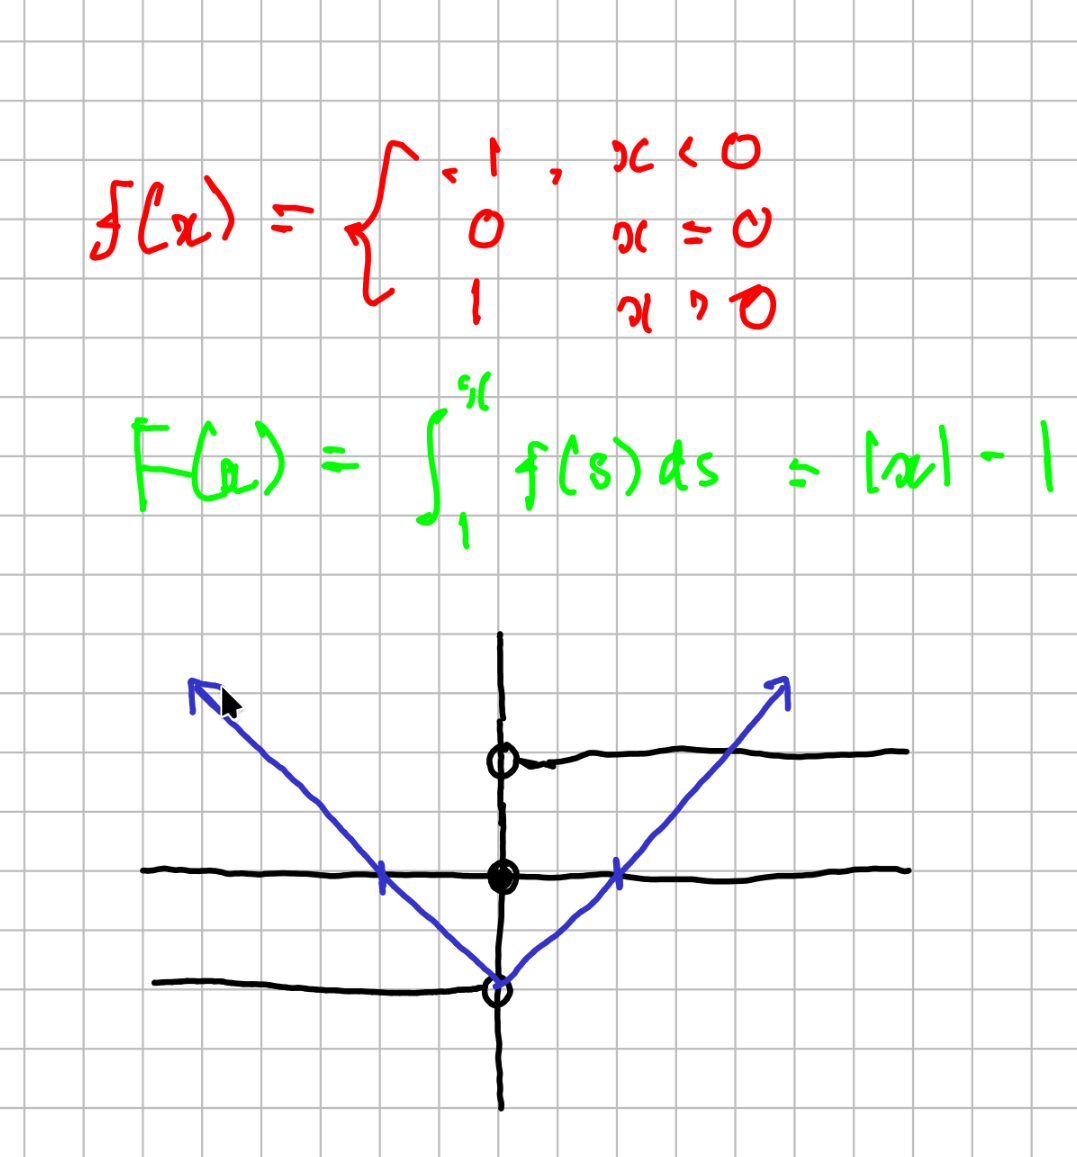 f(x) = { -1 , x < 0
0 x = 0
1 x > 0
F(x) = ∫₁ˣ f(s) ds = |x| - 1